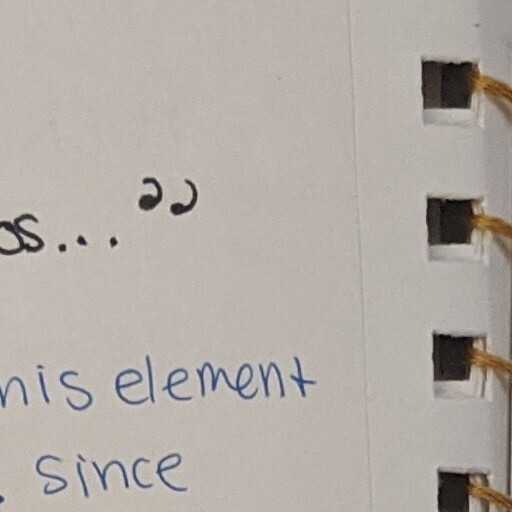 os...”
his element
. since